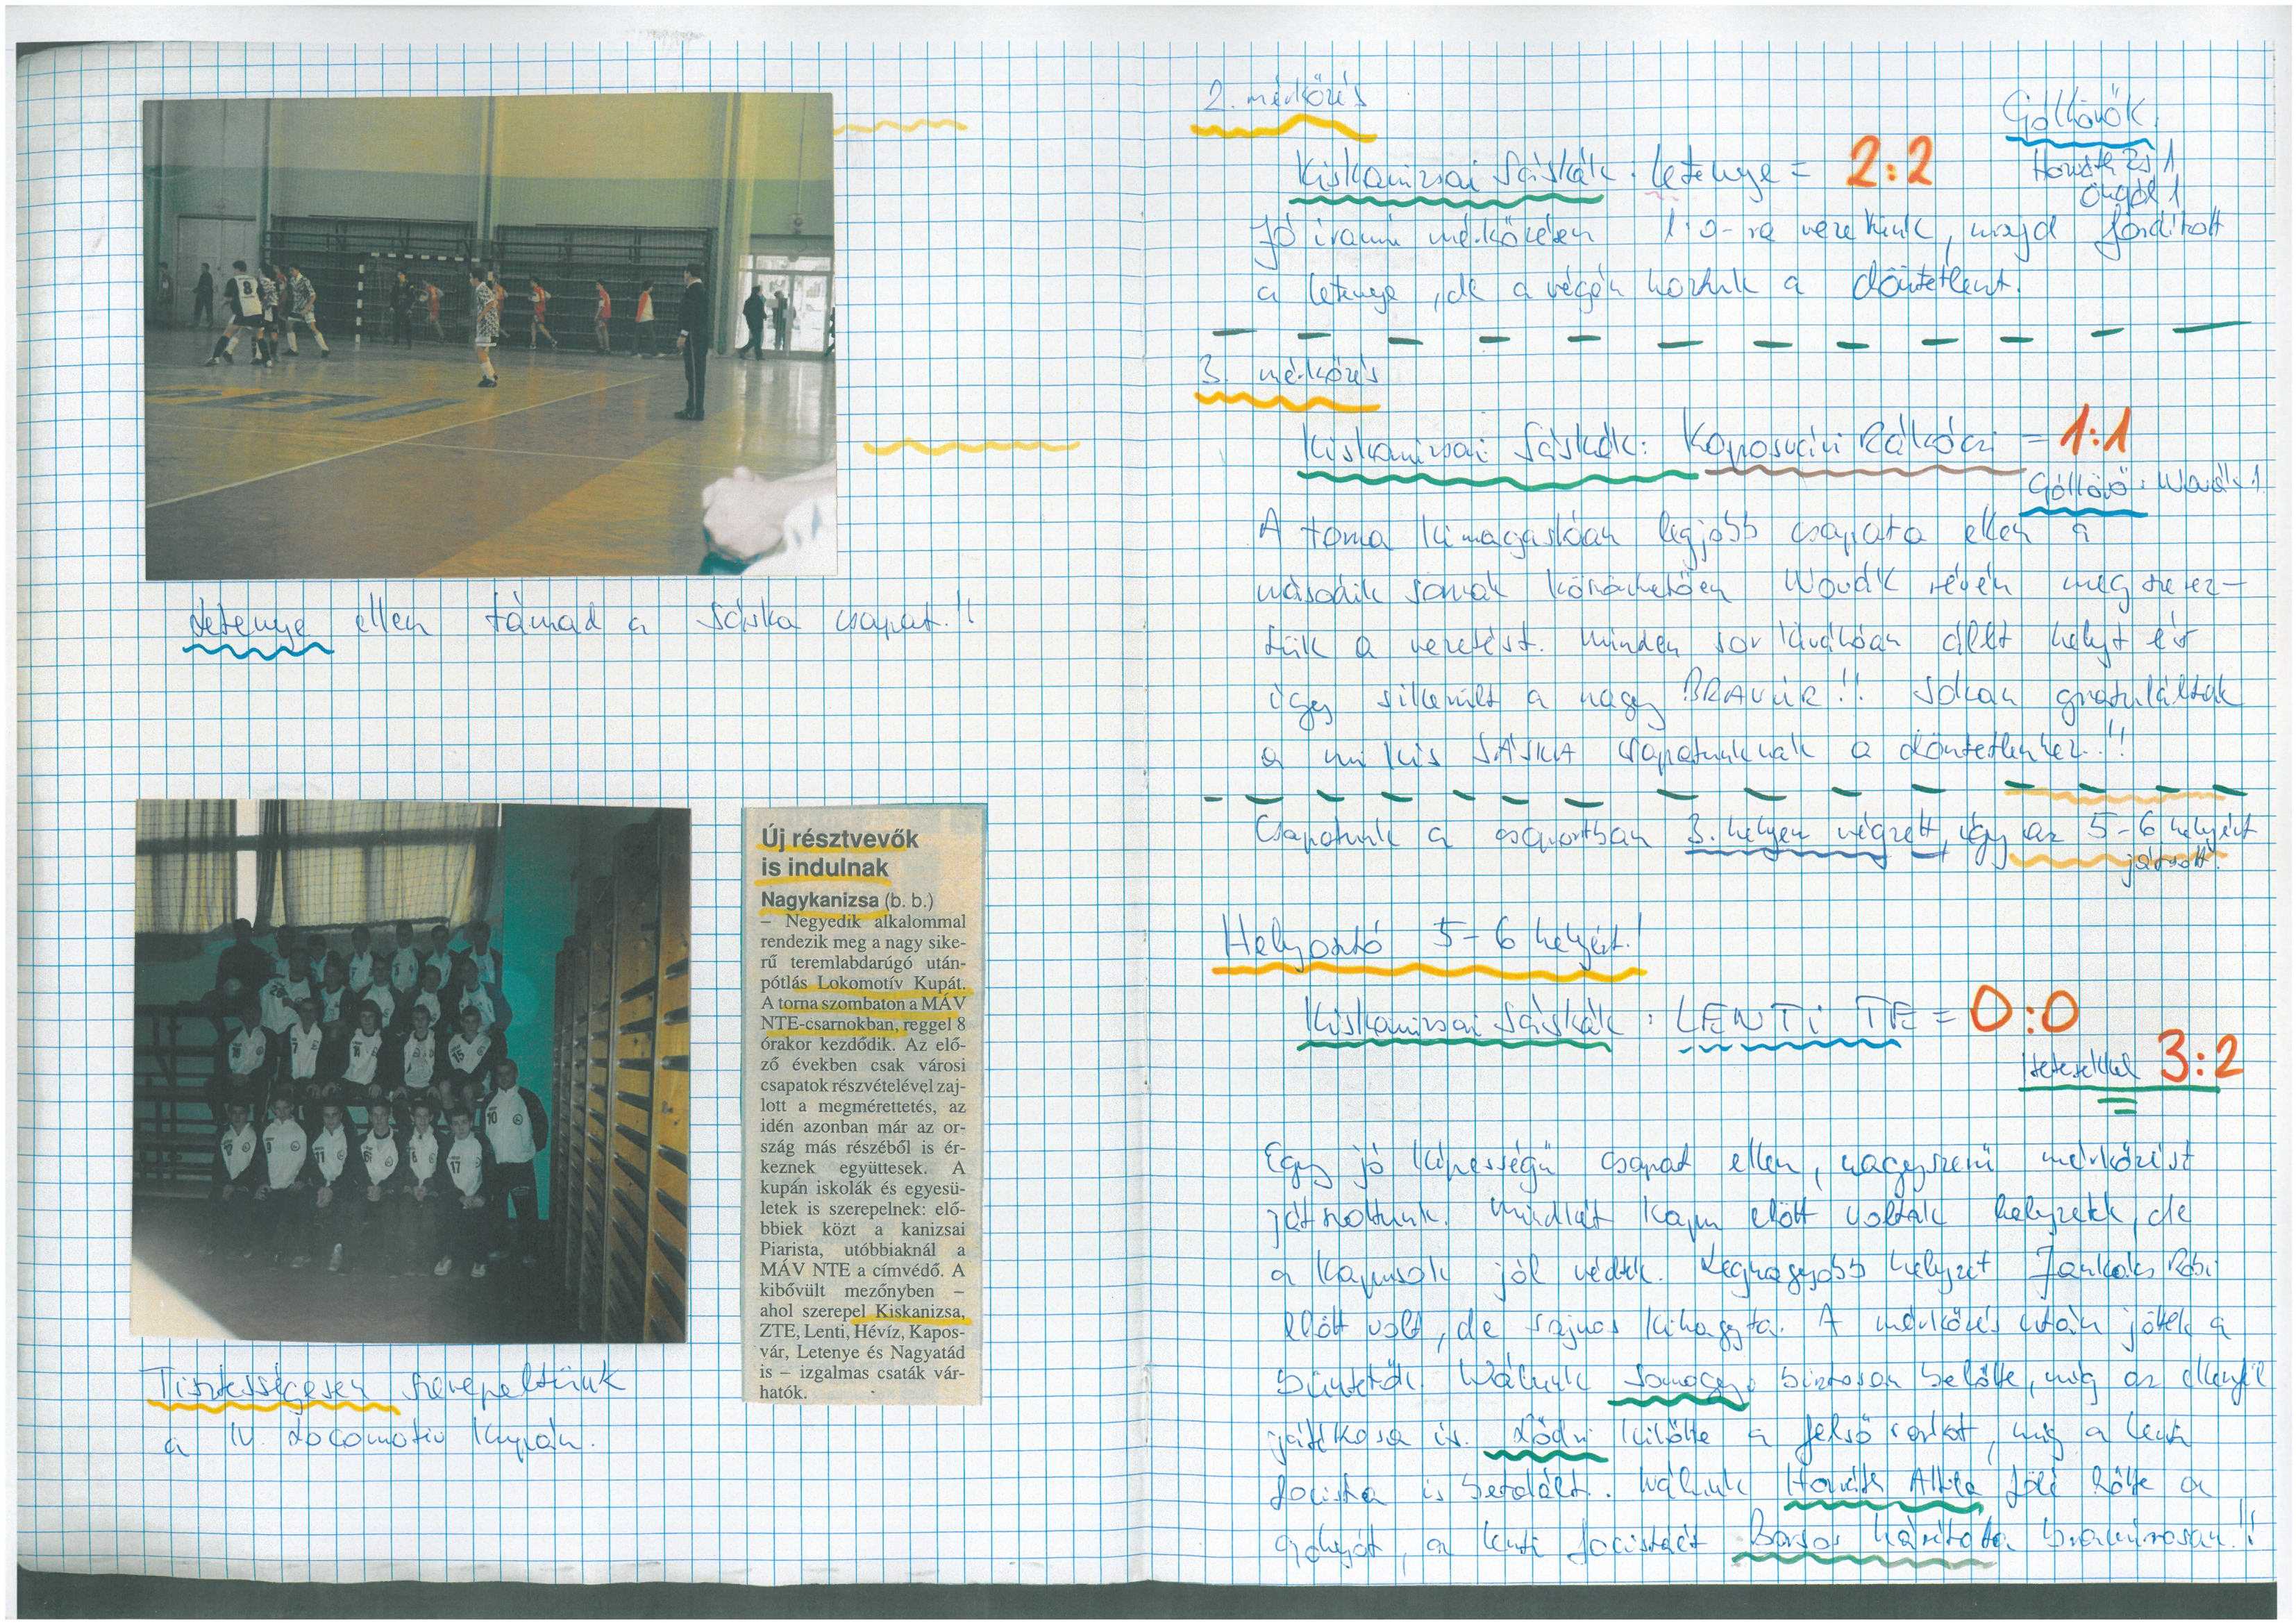 Letenye ellen támad a Sáska csapat!!
Új résztvevők
is indulnak
Nagykanizsa (b. b.)
– Negyedik alkalommal
rendezik meg a nagy sike-
rű teremlabdarúgó után-
pótlás Lokomotív Kupát.
A torna szombaton a MÁV
NTE-csarnokban, reggel 8
órakor kezdődik. Az elő-
ző években csak városi
csapatok részvételével zaj-
lott a megmérettetés, az
idén azonban már az or-
szág más részéből is ér-
keznek együttesek. A
kupán iskolák és egyesü-
letek is szerepelnek: elő-
bbiek közt a kanizsai
Piarista, utóbbiaknál a
MÁV NTE a címvédő. A
kibővült mezőnyben –
ahol szerepel Kiskanizsa,
ZTE, Lenti, Hévíz, Kapos-
vár, Letenye és Nagyatád
is – izgalmas csaták vár-
hatók.
Tisztességesen szerepeltünk
a IV. Locomotiv Kupán.
2. mérkőzés
Góllövők:
Kiskanizsai Sáskák : Letenye = 2:2
Horváth Zs 1
öngól 1
Jó iramú mérkőzésen 1:0-ra vezettünk, majd fordított
a Letenye, de a végén hoztuk a döntetlent.
3. mérkőzés
Kiskanizsai Sáskák : Kaposvári Rákóczi = 1:1
Góllövő: 1
A torna kimagaslóan legjobb csapata ellen a
második sornak köszönhetően révén megszerez-
tük a vezetést. Minden sor kiválóan állt helyt és
így sikerült a nagy BRAVÚR!! Sokan gratuláltak
a mi kis SÁSKA csapatunknak a döntetlenhez!!
Csapatunk a csoportban 3. helyen végzett, így az 5-6 helyért
játszott.
Helyosztó 5-6 helyért!
Kiskanizsai Sáskák : LENTI TE = 0:0
Hetesekkel 3:2
Egy jó képességű csapat ellen, nagyszerű mérkőzést
játszottunk. Mindkét kapu előtt voltak helyzetek, de
a kapusok jól védtek. Legnagyobb helyzet Jankovics Robi
előtt volt, de sajnos kihagyta. A mérkőzés után jöttek a
büntetők. Nálunk Somogyi biztosan belőtte, míg az ellenfél
játékosa is. Dódi kilőtte a felső sarkot, míg a lenti
focista is betalált. Nálunk Horváth Attila fölé lőtte a
gólyát, a lenti focistáét Boros hárította bravúrosan!!